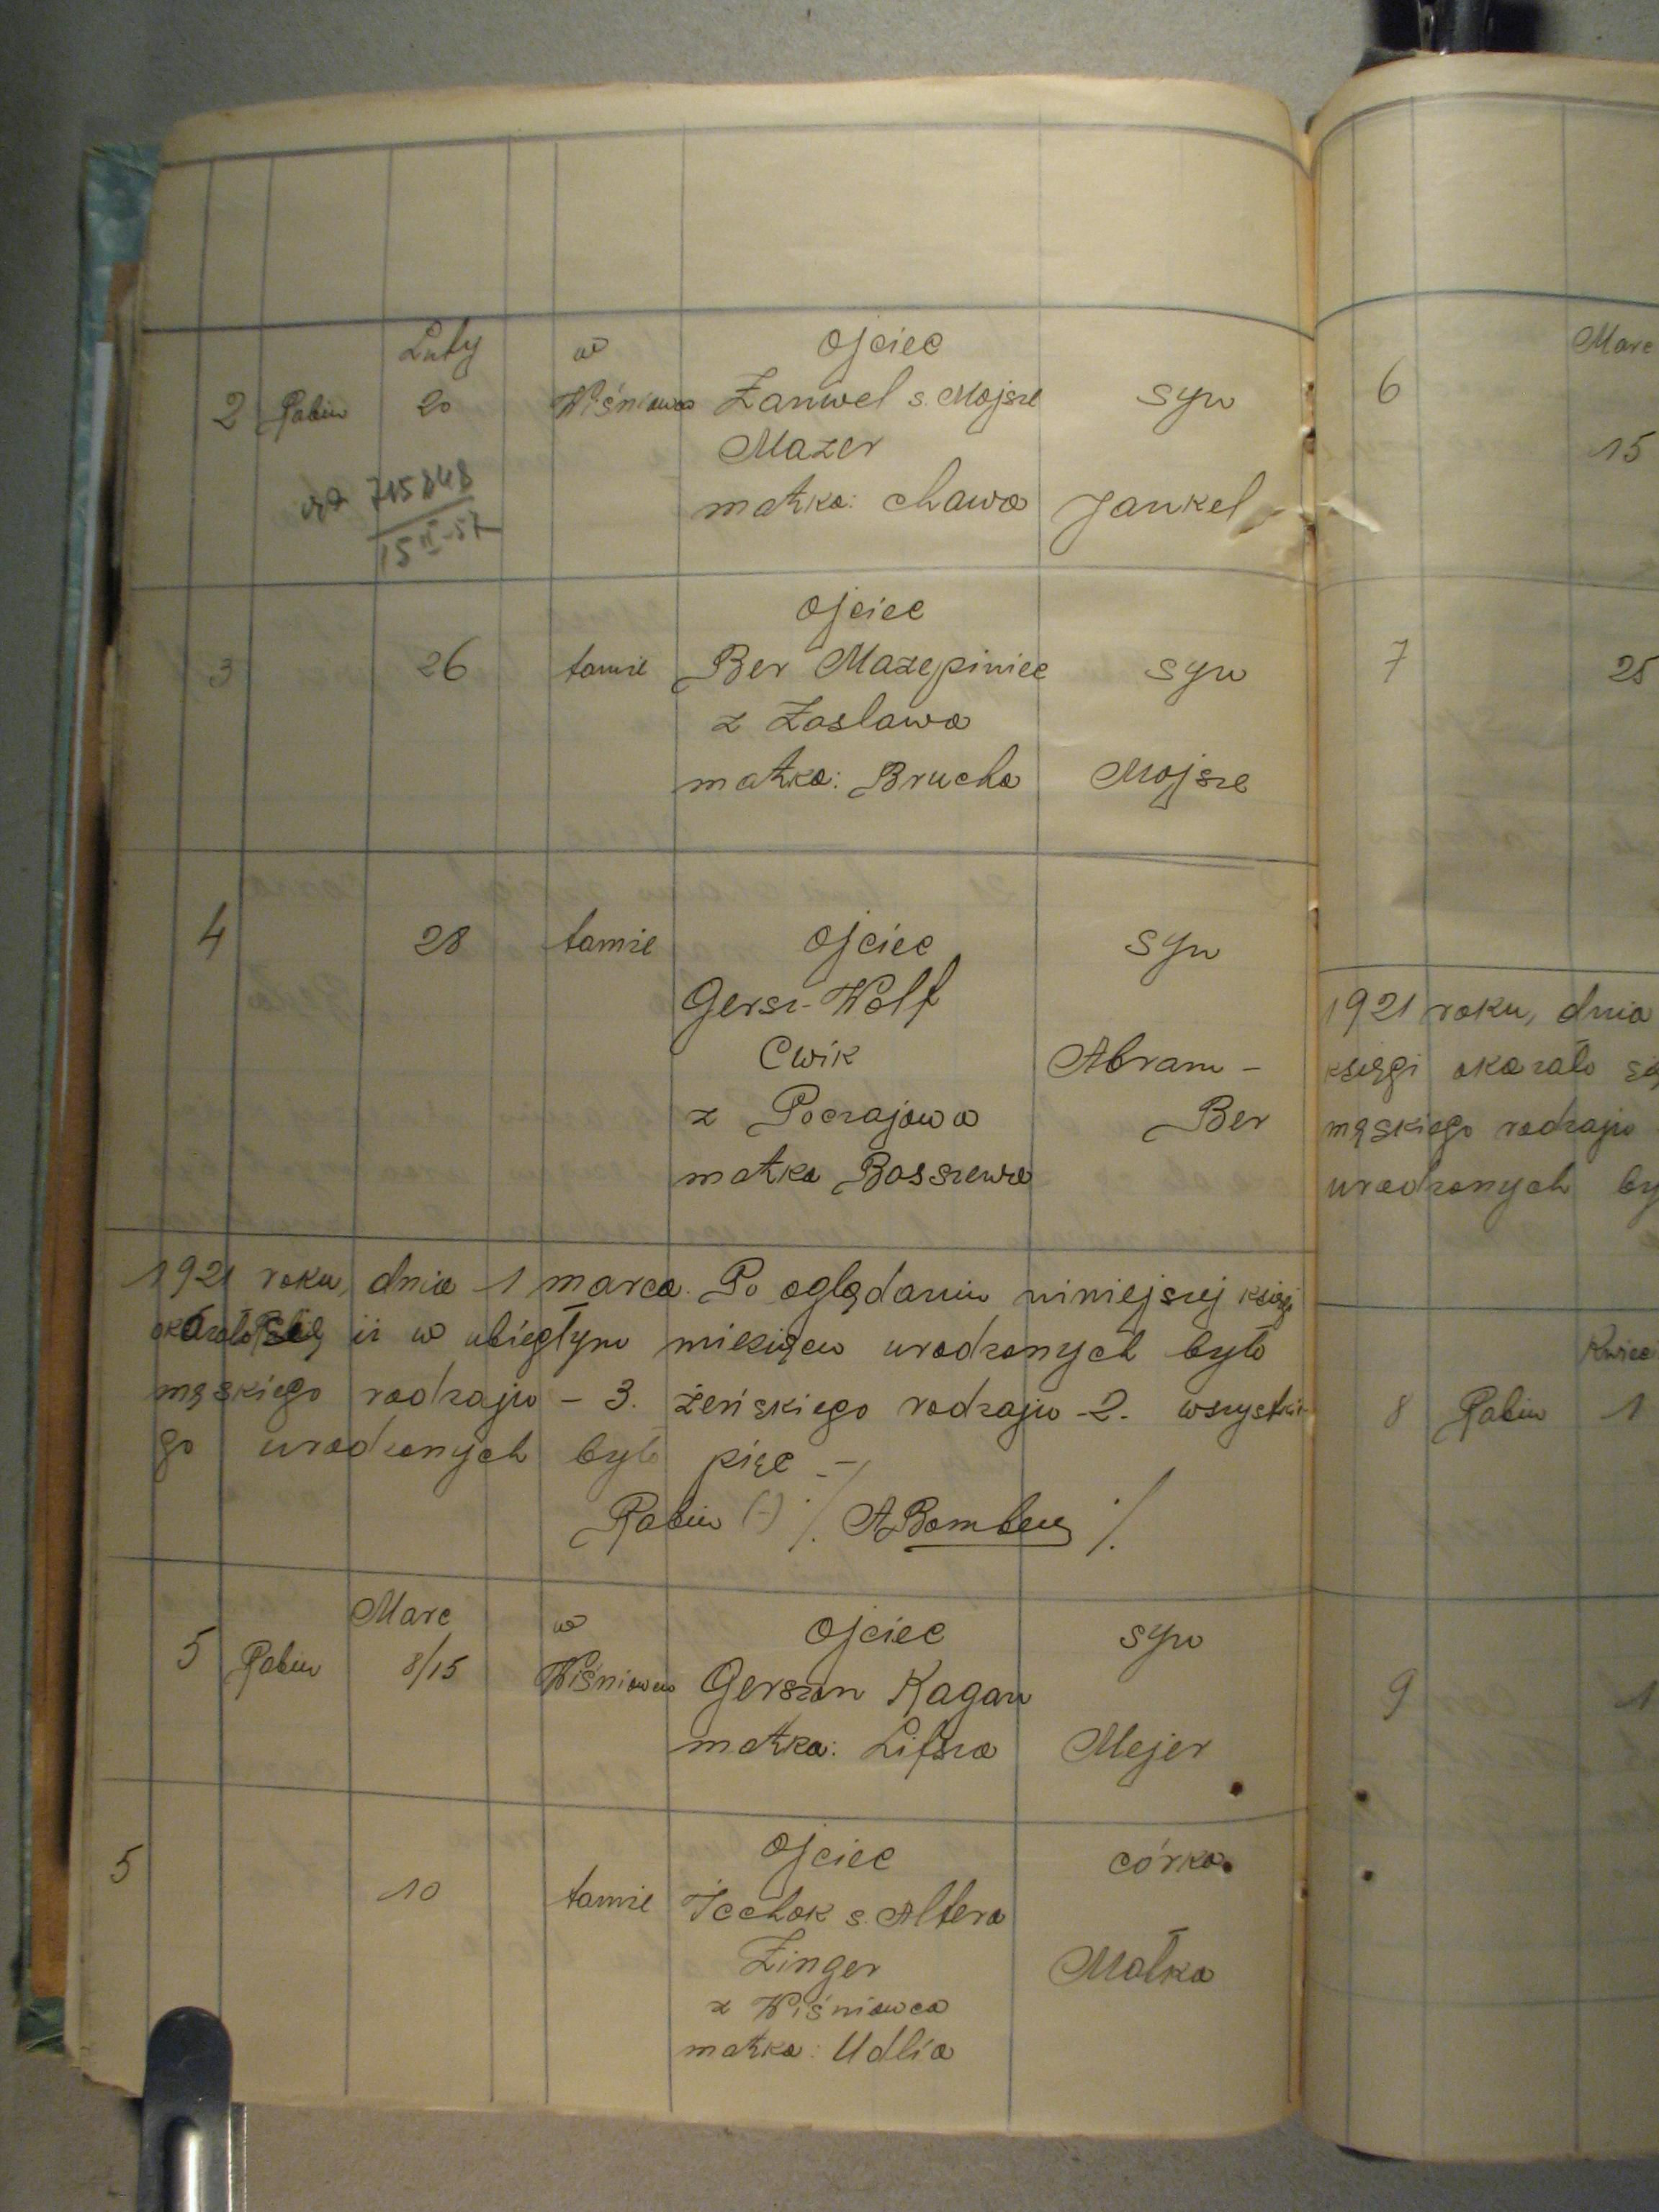 Luty w ojciec
2 Rabin 20 Wiśniowcu Zanwel s. Mojsze syn
Mazer
715848 matka: Chawa Jankel
15 II-57
ojciec
3 26 tamże Ber Mazepiniec syn
z Zasława
matka: Brucha Mojsze
4 28 tamże ojciec syn
Gersz-Wolf
Cwik Abram-
z Poczajowa Ber
matka Basszewa
1921 roku, dnia 1 marca. Po oglądaniu niniejszej księgi
okazało się, iż w ubiegłym miesiącu urodzonych było
męskiego rodzaju - 3. żeńskiego rodzaju - 2. wszystkie-
go urodzonych było pięć -
Rabin (-) /. ABomberg /.
Marc w ojciec syn
5 Rabin 8/15 Wiśniowcu Gerszon Kagan
matka: Lifsza Mejer
5 ojciec córka
10 tamże Icchok s. Altera
Zinger Małka
z Wiśniowca
matka: Udlia
Marc
6
15
7 25
1921 roku, dnia
księgi okazało się
męskiego rodzaju
urodzonych by
Kwiec
8 Rabin 1
9 1